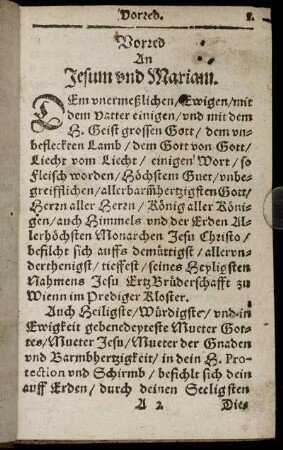 Vorred. 2.
Vorred
An
Jesum vnd Mariam.
DEm vnermeßlichen/Ewigen/mit
dem Vatter einigen/vnd mit dem
H. Geist grossen Gott/dem vn-
befleckten Lamb/dem Gott von Gott/
Liecht vom Liecht/einigen Wort/so
Fleisch worden/Höchstem Guet/vnbe-
greifflichen/allerbarm̄hertzigsten Gott/
Herrn aller Herrn/König aller Köni-
gen/auch Himmels vnd der Erden Al-
lerhöchsten Monarchen Jesu Christo/
befilcht sich auffs demüttigst/allervn-
derthenigst/tieffest/seines Heyligsten
Nahmens Jesu ErtzBrüderschafft zu
Wienn im Prediger Kloster.
Auch Heiligste/Würdigster/vnd in
Ewigkeit gebenedeyteste Mueter Got-
tes/Mueter Jesu/Mueter der Gnaden
vnd Barmbhertzigkeit/in dein H. Pro-
tection vnd Schirmb/befichlt sich dein
auff Erden/durch deinen Seeligsten
A 2. Dies